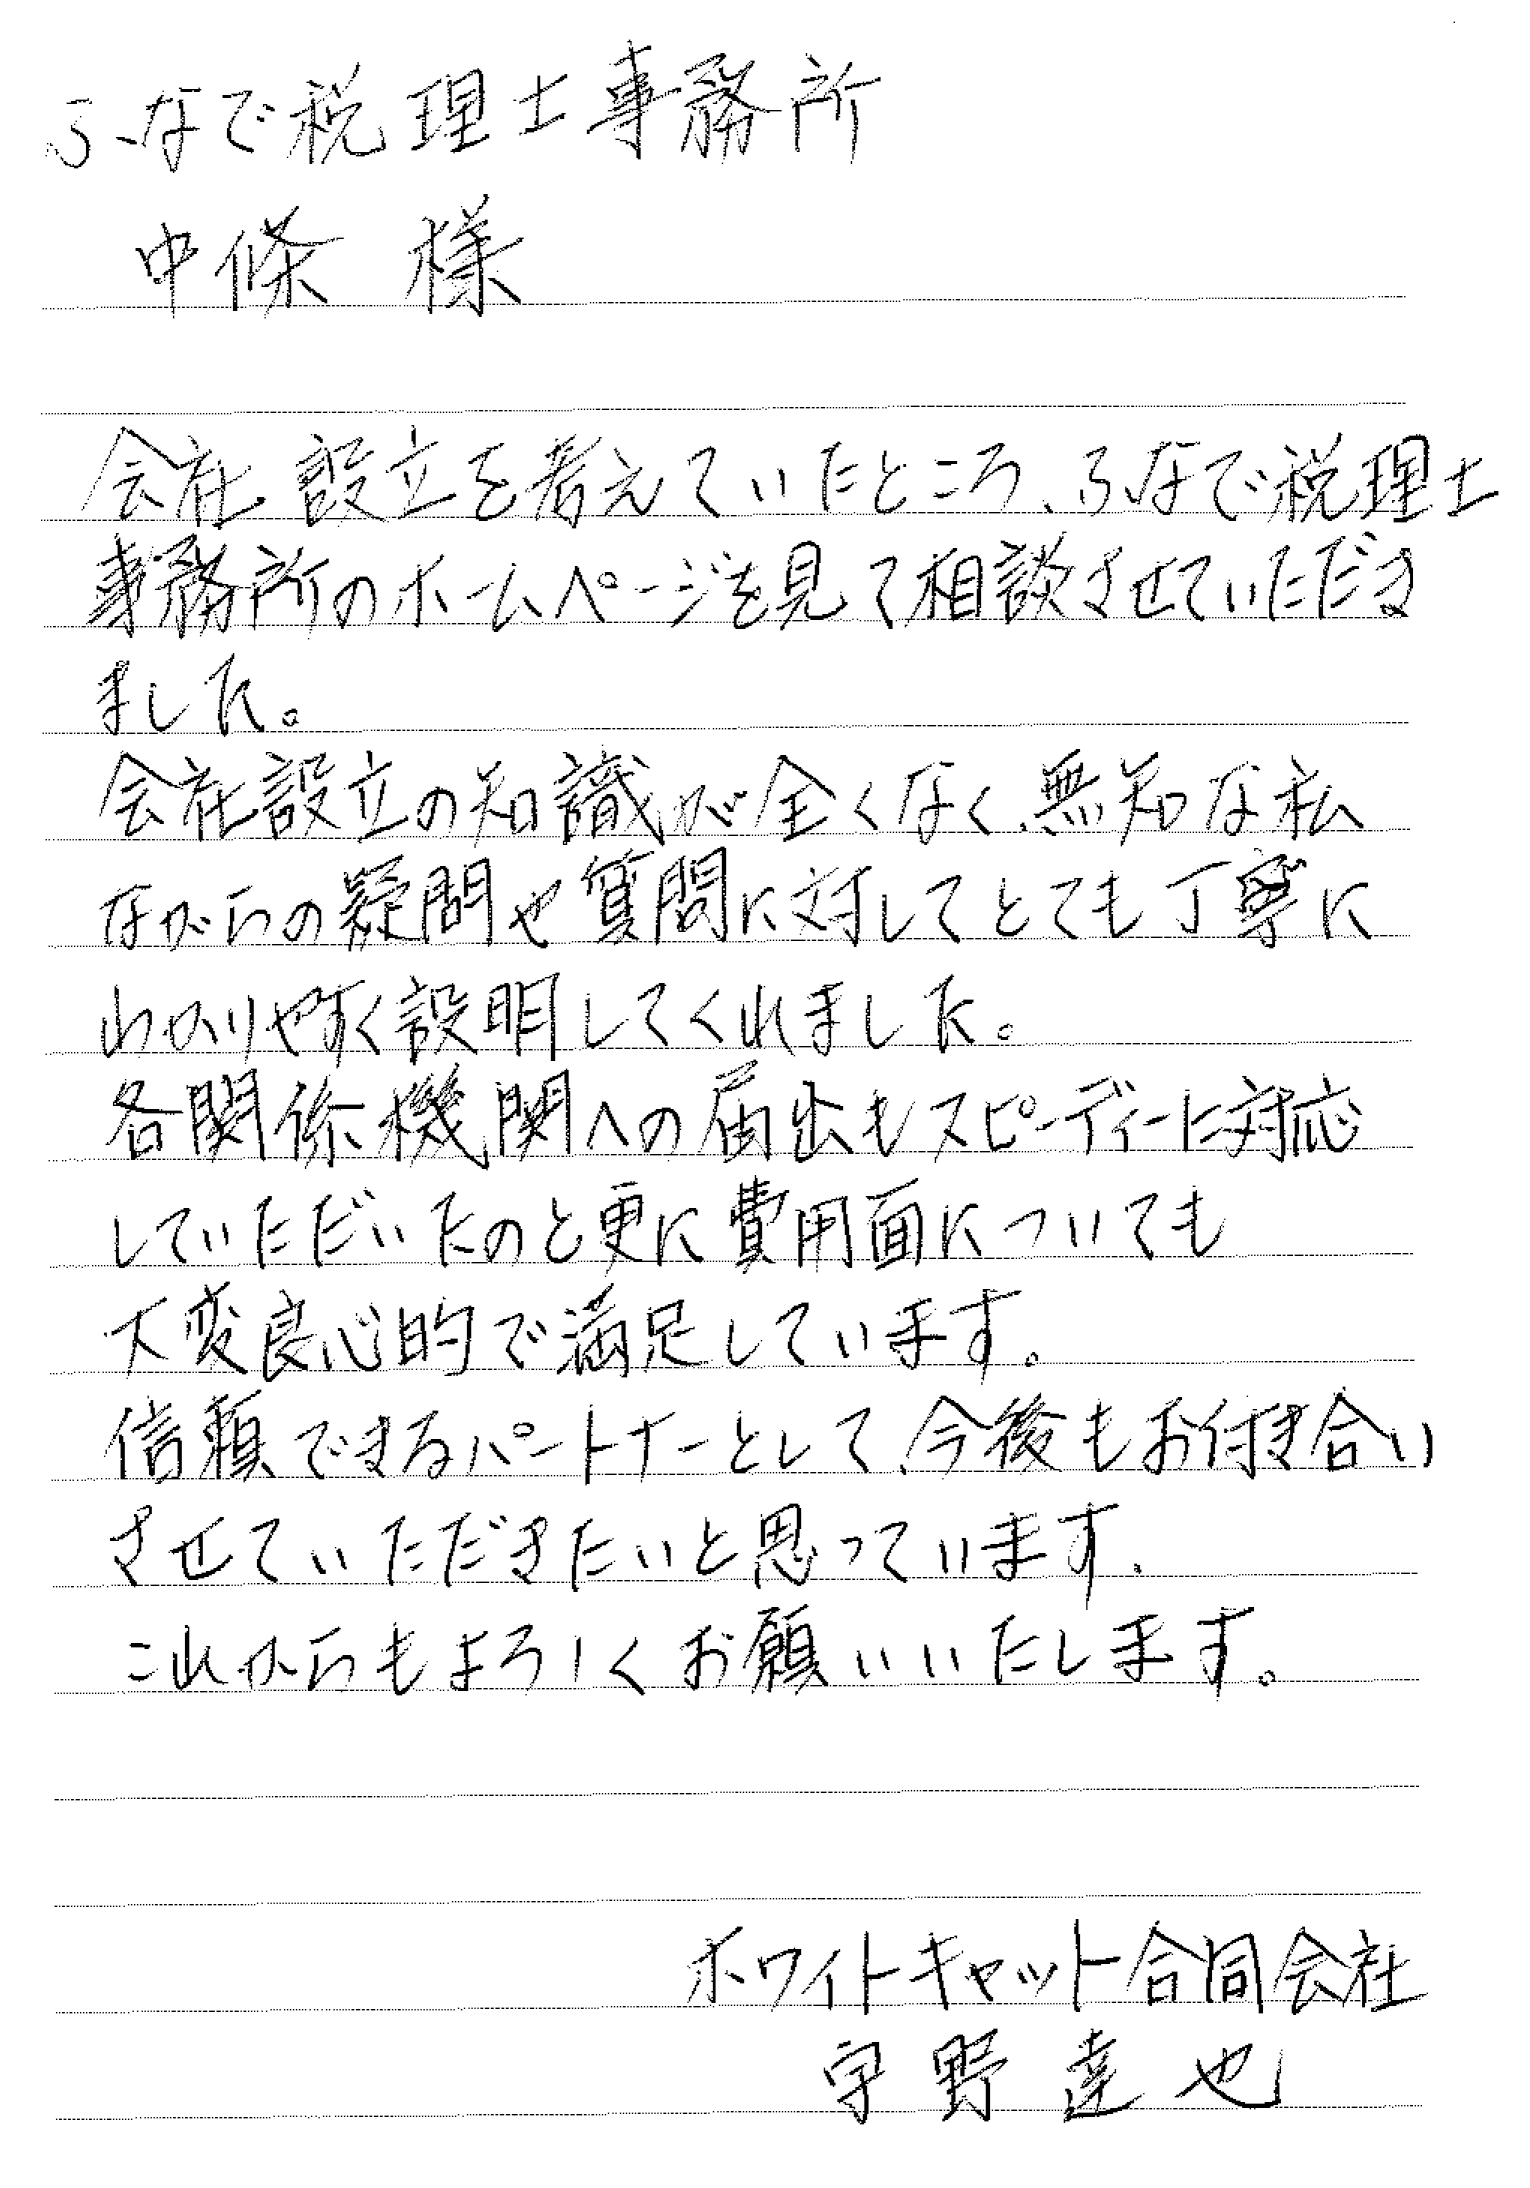 ふなで税理士事務所
中條 様
会社設立を考えていたところ、ふなで税理士
事務所のホームページを見て相談させていただき
ました。
会社設立の知識が全くなく、無知な私
ながらの疑問や質問に対してとても丁寧に
わかりやすく説明してくれました。
各関係機関への届出もスピーディーに対応
していただいたのと更に費用面についても
大変良心的で満足しています。
信頼できるパートナーとして、今後もお付き合い
させていただきたいと思っています。
これからもよろしくお願いいたします。
ホワイトキャット合同会社
宇野達也